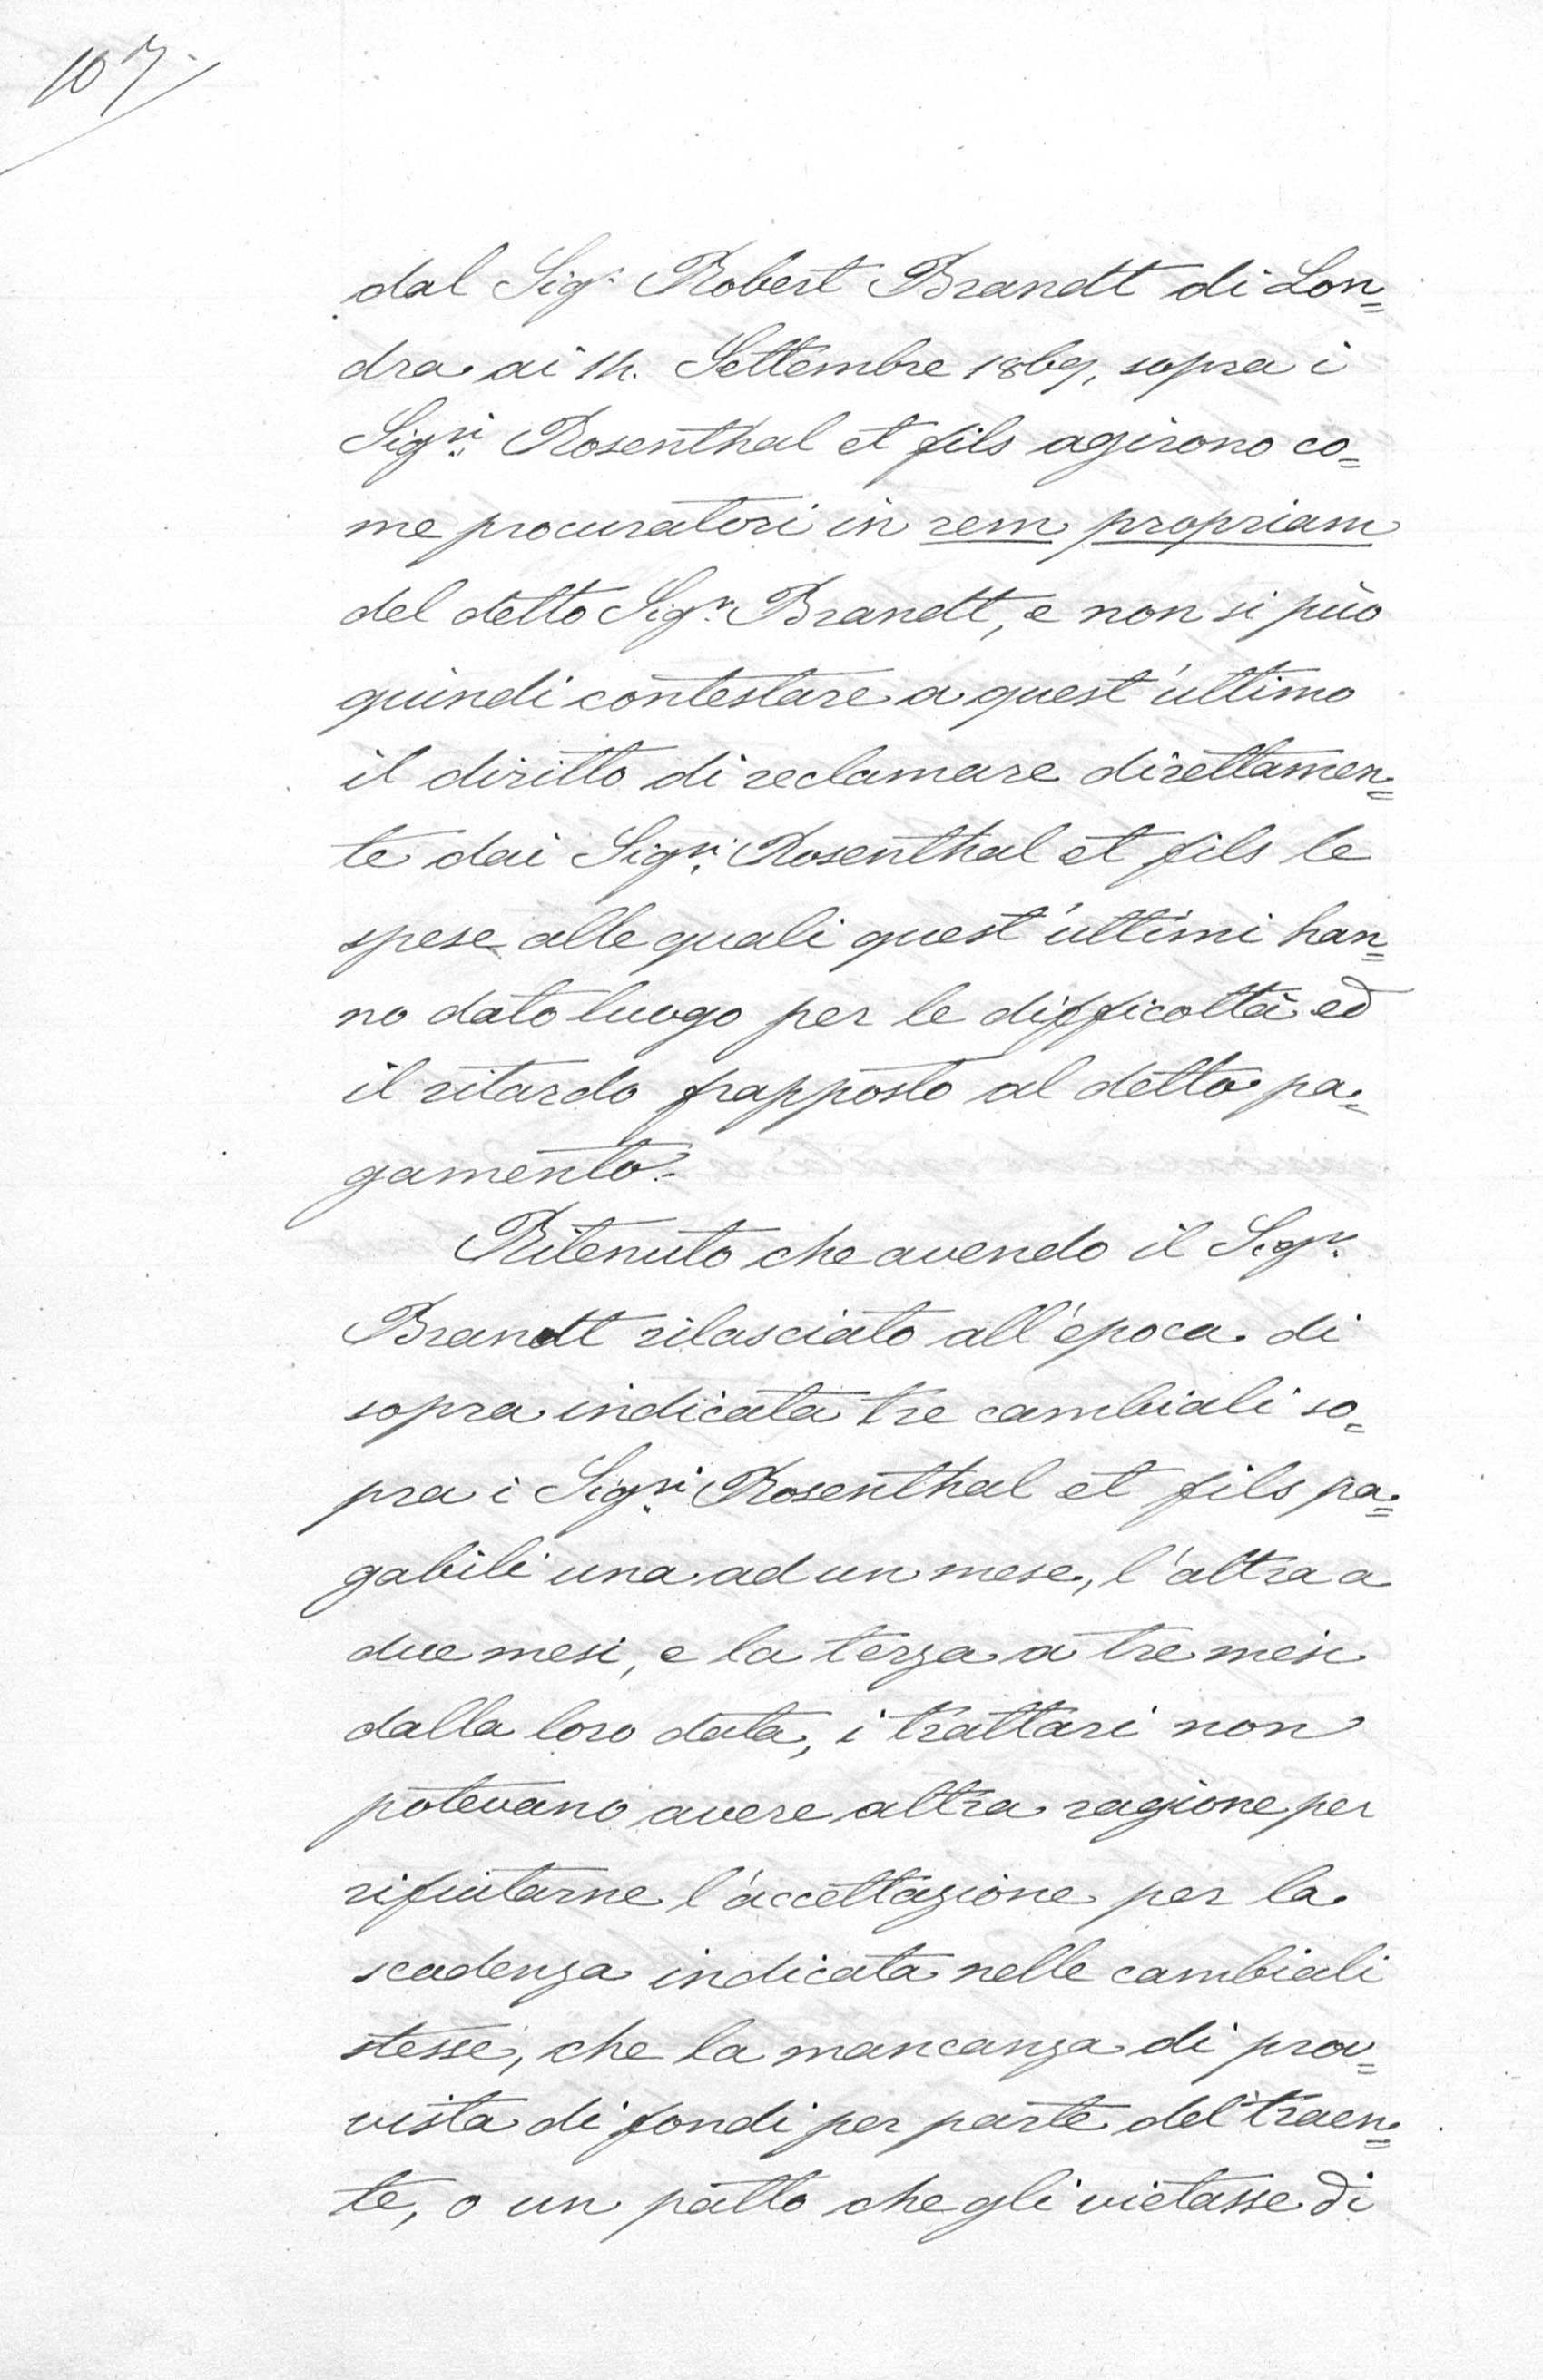 107
dal Sigr. Robert Brandt di Lon=
dra ai 14. Settembre 1869, sopra i
Sigri. Rosenthal et fils agirono co=
me procuratori in rem propriam
del detto Sigr. Brandt, e non si può
quindi contestare a quest'ultimo
il diritto di reclamare direttamen=
te dai Sigri. Rosenthal et fils le
spese alle quali quest'ultimi han=
no dato luogo per le difficoltà ed
il ritardo frapposto al detto pa=
gamento.
Ritenuto che avendo il Sigr.
Brandt rilasciato all'epoca di
sopra indicata tre cambiali so=
pra i Sigri. Rosenthal et fils pa=
gabili una ad un mese, l'altra a
due mesi, e la terza a tre mesi
dalla loro data, i trattari non
potevano avere altra ragione per
rifiutarne l'accettazione per la
scadenza indicata nelle cambiali
stesse, che la mancanza di prov=
vista di fondi per parte del traen=
te, o un patto che gli vietasse di